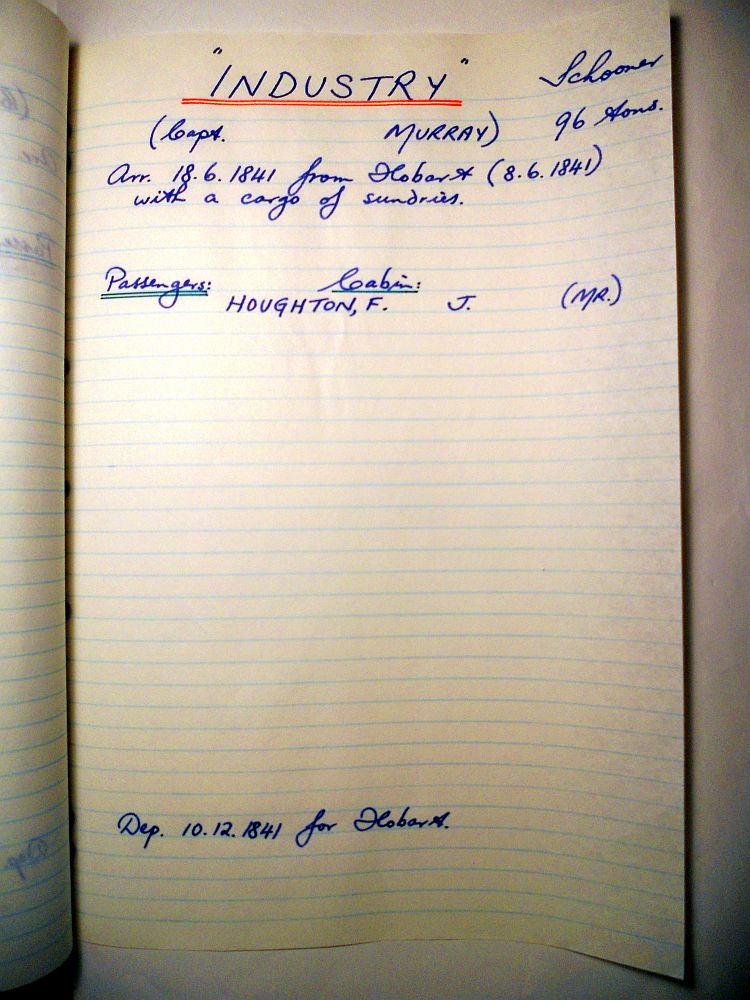 "INDUSTRY"
Schooner
(Capt. MURRAY)
96 tons.
Arr. 18.6.1841 from Hobart (8.6.1841)
with a cargo of sundries.
Passengers: Cabin:
HOUGHTON, F. J. (MR.)
Dep. 10.12.1841 for Hobart.